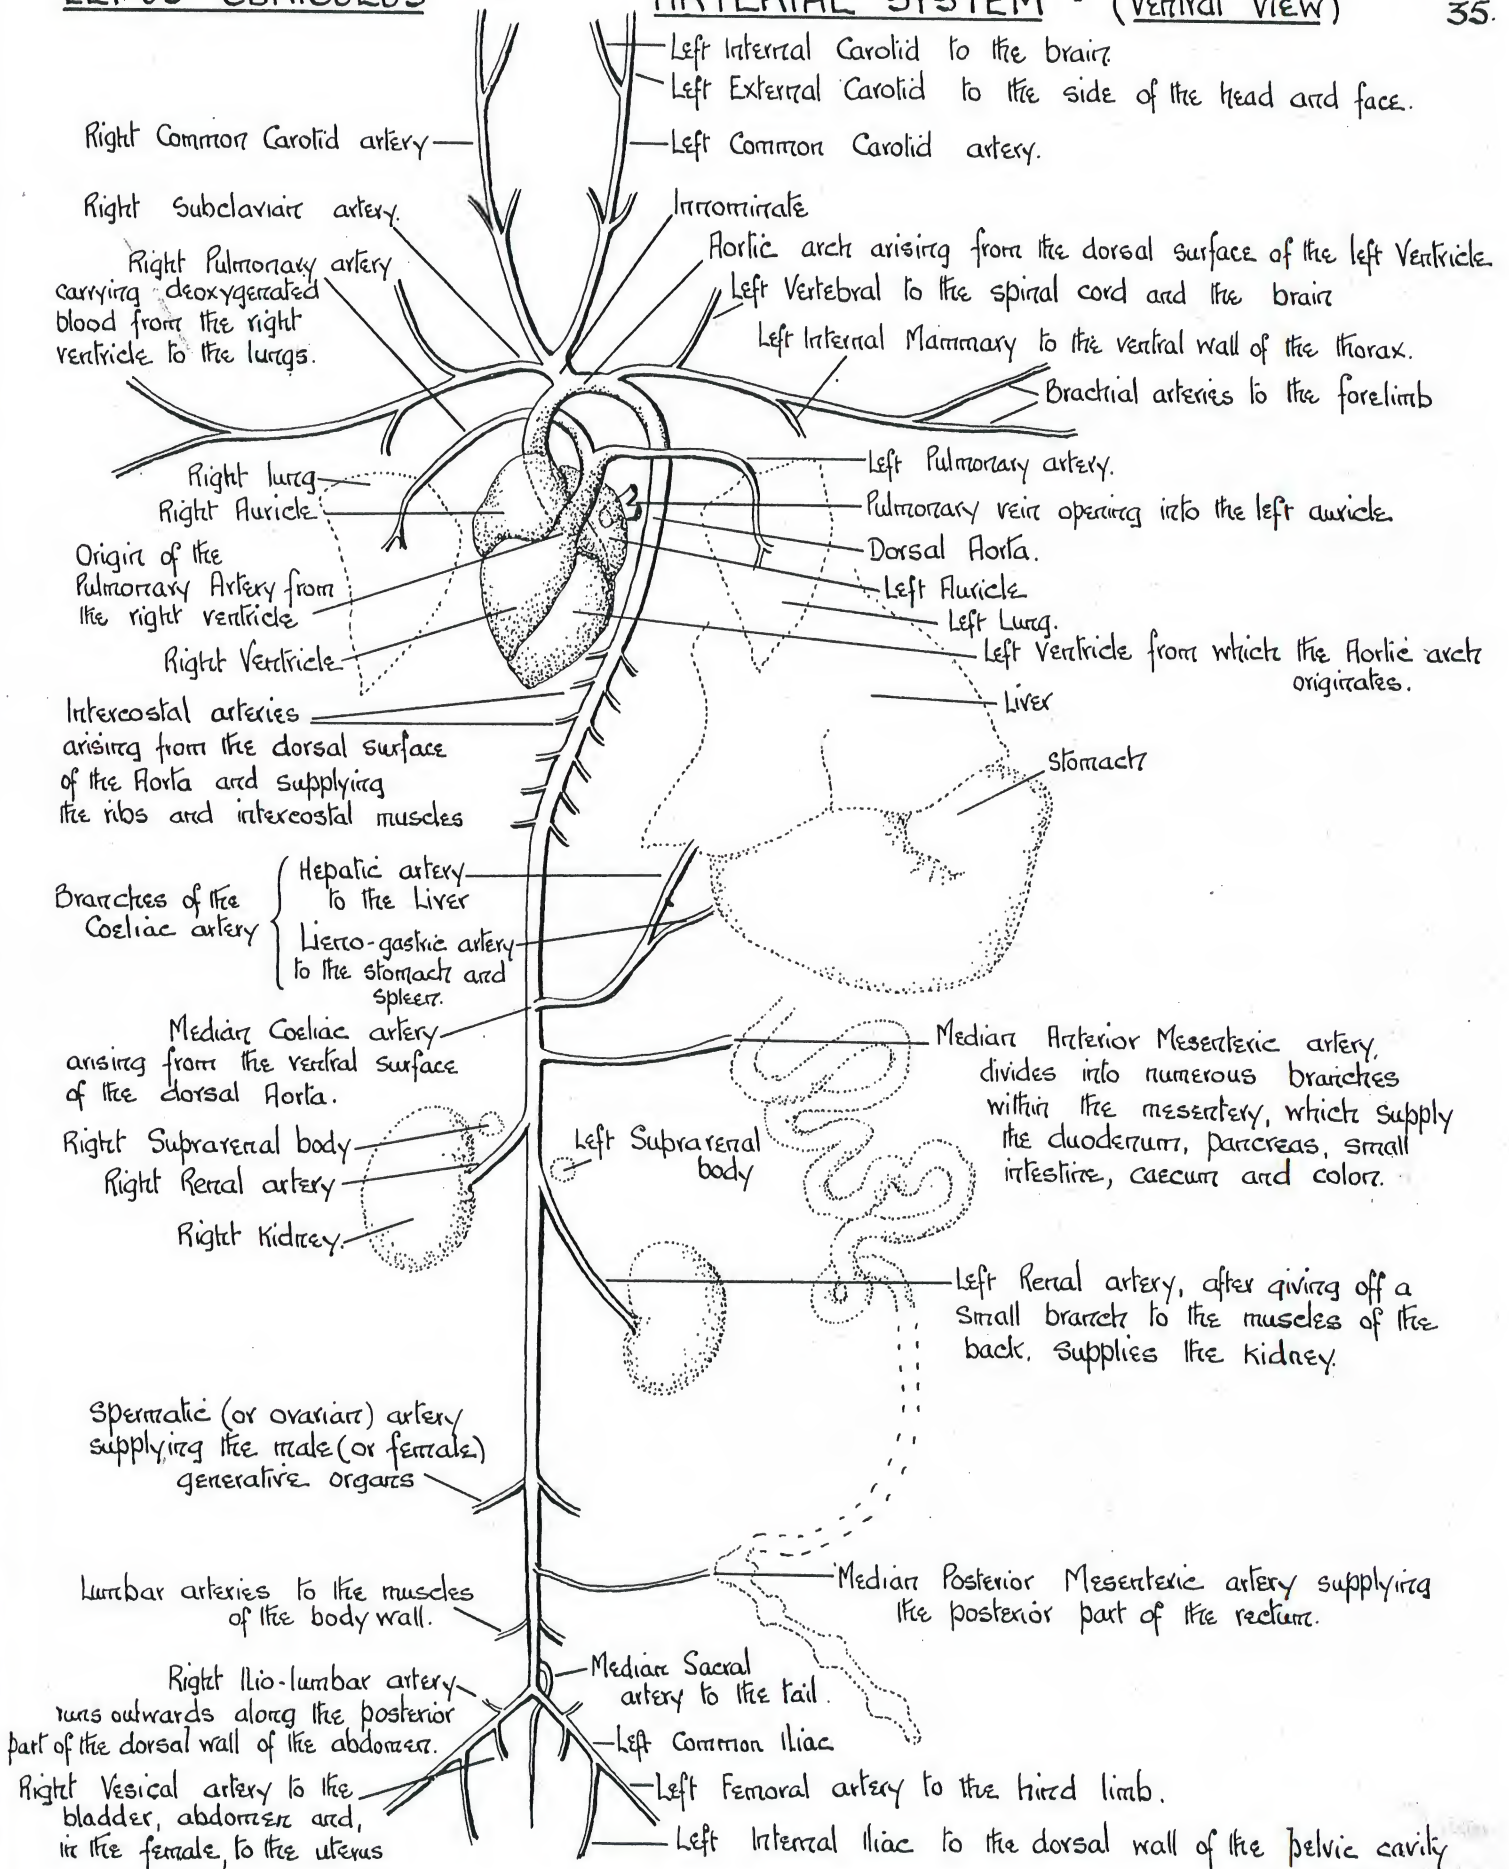 LEPUS CUNICULUS
ARTERIAL SYSTEM - (Ventral View)
35.
Left Internal Carotid to the brain.
Left External Carotid to the side of the head and face.
Right Common Carotid artery
Left Common Carotid artery.
Right Subclavian artery.
Innominate
Aortic arch arising from the dorsal surface of the left Ventricle
Right Pulmonary artery
carrying deoxygenated
blood from the right
ventricle to the lungs.
Left Vertebral to the spinal cord and the brain
Left Internal Mammary to the ventral wall of the thorax.
Brachial arteries to the forelimb
Right lung
Left Pulmonary artery.
Right Auricle
Pulmonary vein opening into the left auricle.
Origin of the
Pulmonary Artery from
the right ventricle
Dorsal Aorta.
Left Auricle
Left Lung.
Right Ventricle
Left Ventricle from which the Aortic arch
originates.
Liver
Intercostal arteries
arising from the dorsal surface
of the Aorta and supplying
the ribs and intercostal muscles
Stomach
Branches of the
Coeliac artery
Hepatic artery
to the Liver
Lieno-gastric artery
to the stomach and
spleen.
Median Coeliac artery
arising from the ventral surface
of the dorsal Aorta.
Median Anterior Mesenteric artery,
divides into numerous branches
within the mesentery, which supply
the duodenum, pancreas, small
intestine, caecum and colon.
Right Suprarenal body
Right Renal artery
Right Kidney.
Left Suprarenal
body
Left Renal artery, after giving off a
small branch to the muscles of the
back, supplies the kidney.
Spermatic (or ovarian) artery
supplying the male (or female)
generative organs
Median Posterior Mesenteric artery supplying
the posterior part of the rectum.
Lumbar arteries to the muscles
of the body wall.
Right Ilio-lumbar artery
runs outwards along the posterior
part of the dorsal wall of the abdomen.
Median Sacral
artery to the tail.
Left Common Iliac
Right Vesical artery to the
bladder, abdomen and,
in the female, to the uterus
Left Femoral artery to the hind limb.
Left Internal Iliac to the dorsal wall of the pelvic cavity